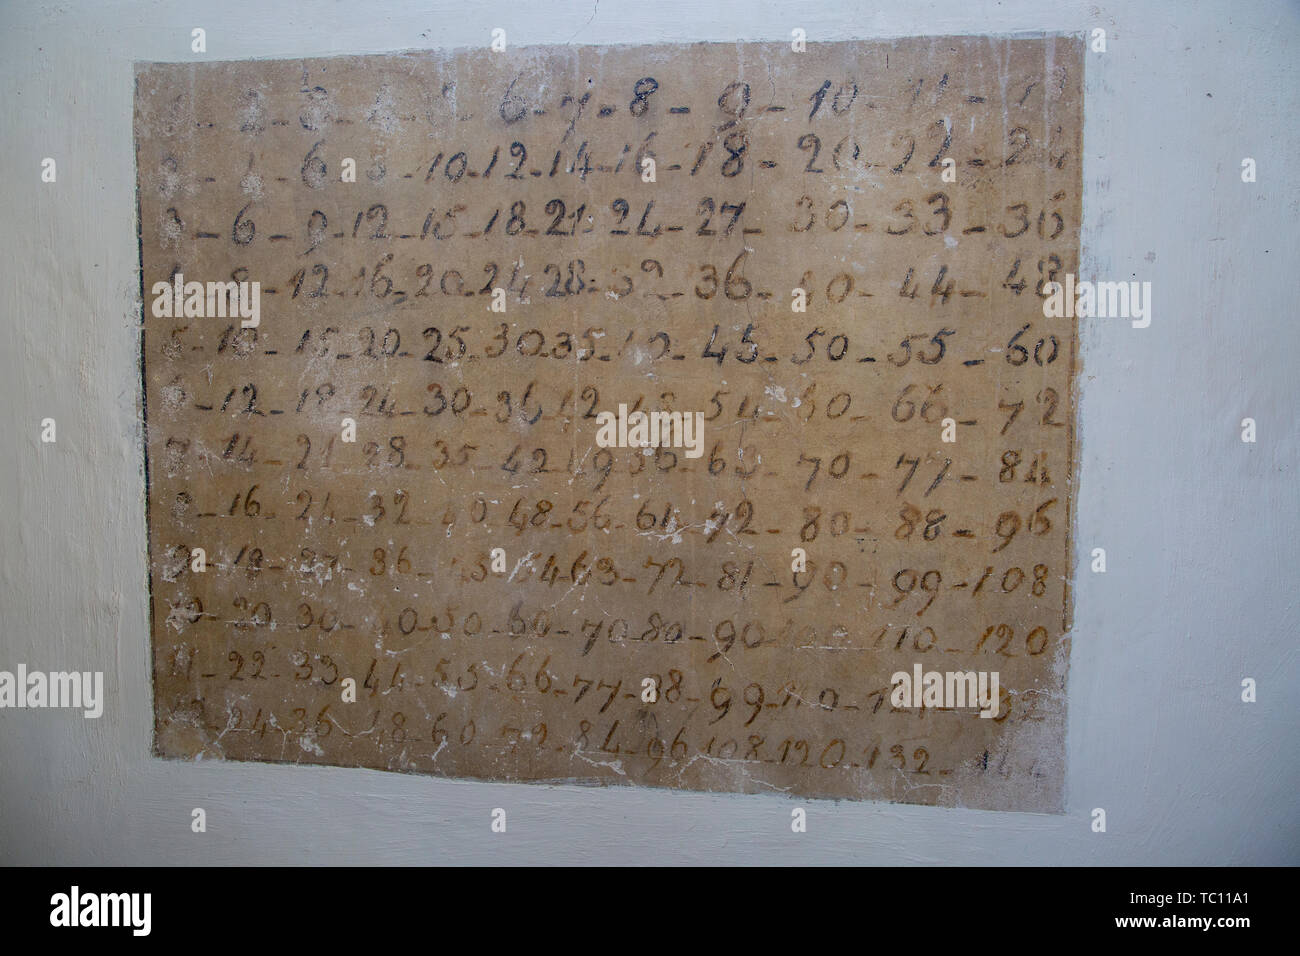 1 - 2 - 3 - 4 - 5 - 6 - 7 - 8 - 9 - 10 - 11 - 12
2 - 4 - 6 - 8 - 10 - 12 - 14 - 16 - 18 - 20 - 22 - 24
3 - 6 - 9 - 12 - 15 - 18 - 21 - 24 - 27 - 30 - 33 - 36
4 - 8 - 12 - 16 - 20 - 24 - 28 - 32 - 36 - 40 - 44 - 48
5 - 10 - 15 - 20 - 25 - 30 - 35 - 40 - 45 - 50 - 55 - 60
6 - 12 - 18 - 24 - 30 - 36 - 42 - 48 - 54 - 60 - 66 - 72
7 - 14 - 21 - 28 - 35 - 42 - 49 - 56 - 63 - 70 - 77 - 84
8 - 16 - 24 - 32 - 40 - 48 - 56 - 64 - 72 - 80 - 88 - 96
9 - 18 - 27 - 36 - 45 - 54 - 63 - 72 - 81 - 90 - 99 - 108
10 - 20 - 30 - 40 - 50 - 60 - 70 - 80 - 90 - 100 - 110 - 120
11 - 22 - 33 - 44 - 55 - 66 - 77 - 88 - 99 - 110 - 121 - 132
12 - 24 - 36 - 48 - 60 - 72 - 84 - 96 - 108 - 120 - 132 - 144
alamy
alamy
alamy
alamy
a a a a
alamy
Image ID: TC11A1
www.alamy.com